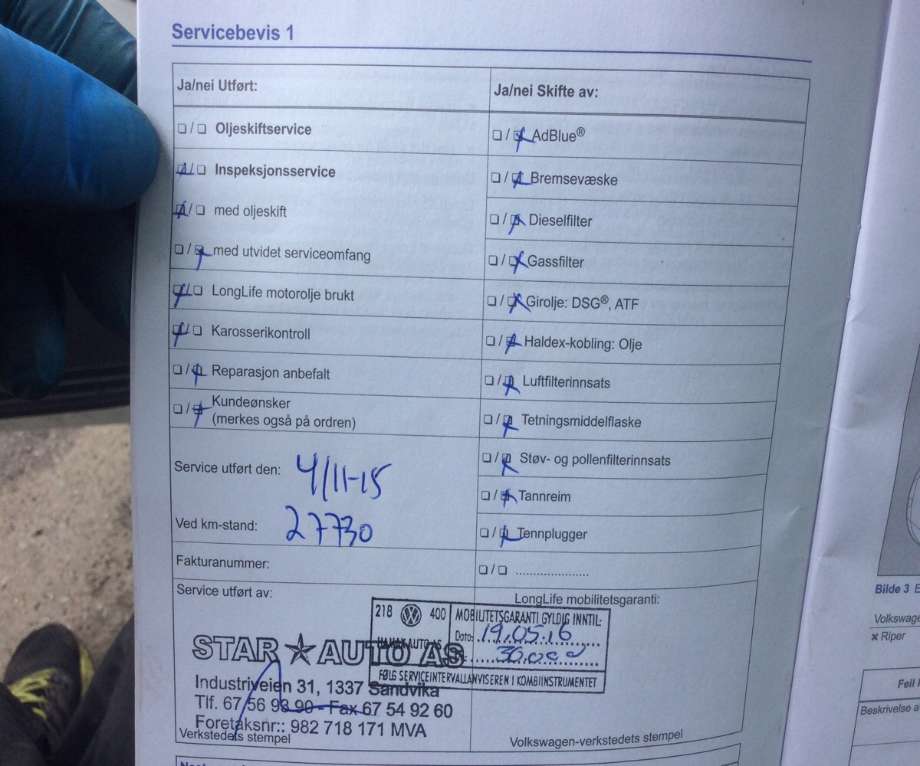 Servicebevis 1
Ja/nei Utført:
☐/☐ Oljeskiftservice
☒/☐ Inspeksjonsservice
☒/☐ med oljeskift
☐/☒ med utvidet serviceomfang
☒/☐ LongLife motorolje brukt
☒/☐ Karosserikontroll
☐/☒ Reparasjon anbefalt
☐/☒ Kundeønsker
(merkes også på ordren)
Service utført den: 4/11-15
Ved km-stand: 27730
Fakturanummer:
Service utført av:
STAR AUTO AS
Industriveien 31, 1337 Sandvika
Tlf. 67 56 93 90 - Fax 67 54 92 60
Foretaksnr.: 982 718 171 MVA
Verkstedets stempel
Ja/nei Skifte av:
☐/☒ AdBlue®
☐/☒ Bremsevæske
☐/☒ Dieselfilter
☐/☒ Gassfilter
☐/☒ Girolje: DSG®, ATF
☐/☒ Haldex-kobling: Olje
☐/☒ Luftfilterinnsats
☐/☒ Tetningsmiddelflaske
☐/☒ Støv- og pollenfilterinnsats
☐/☒ Tannreim
☐/☒ Tennplugger
☐/☐ ....................
LongLife mobilitetsgaranti:
218 VW 400 MOBILITETSGARANTI GYLDIG INNTIL:
Dato: 19.05.16
30.000
FØLG SERVICEINTERVALLANVISEREN I KOMBIINSTRUMENTET
Volkswagen-verkstedets stempel
Bilde 3
Volkswage
× Riper
Feil
Beskrivelse a